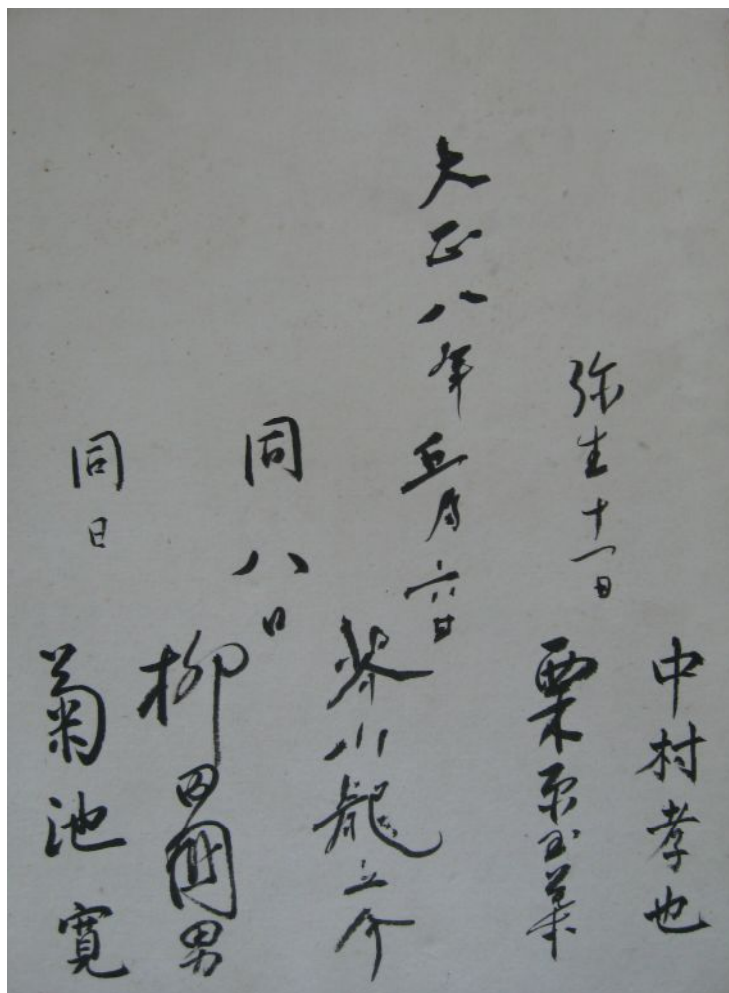 中村孝也
弥生十一日 栗原玉葉
大正八年五月六日 芥川龍之介
同八日 柳田國男
同日 菊池寛